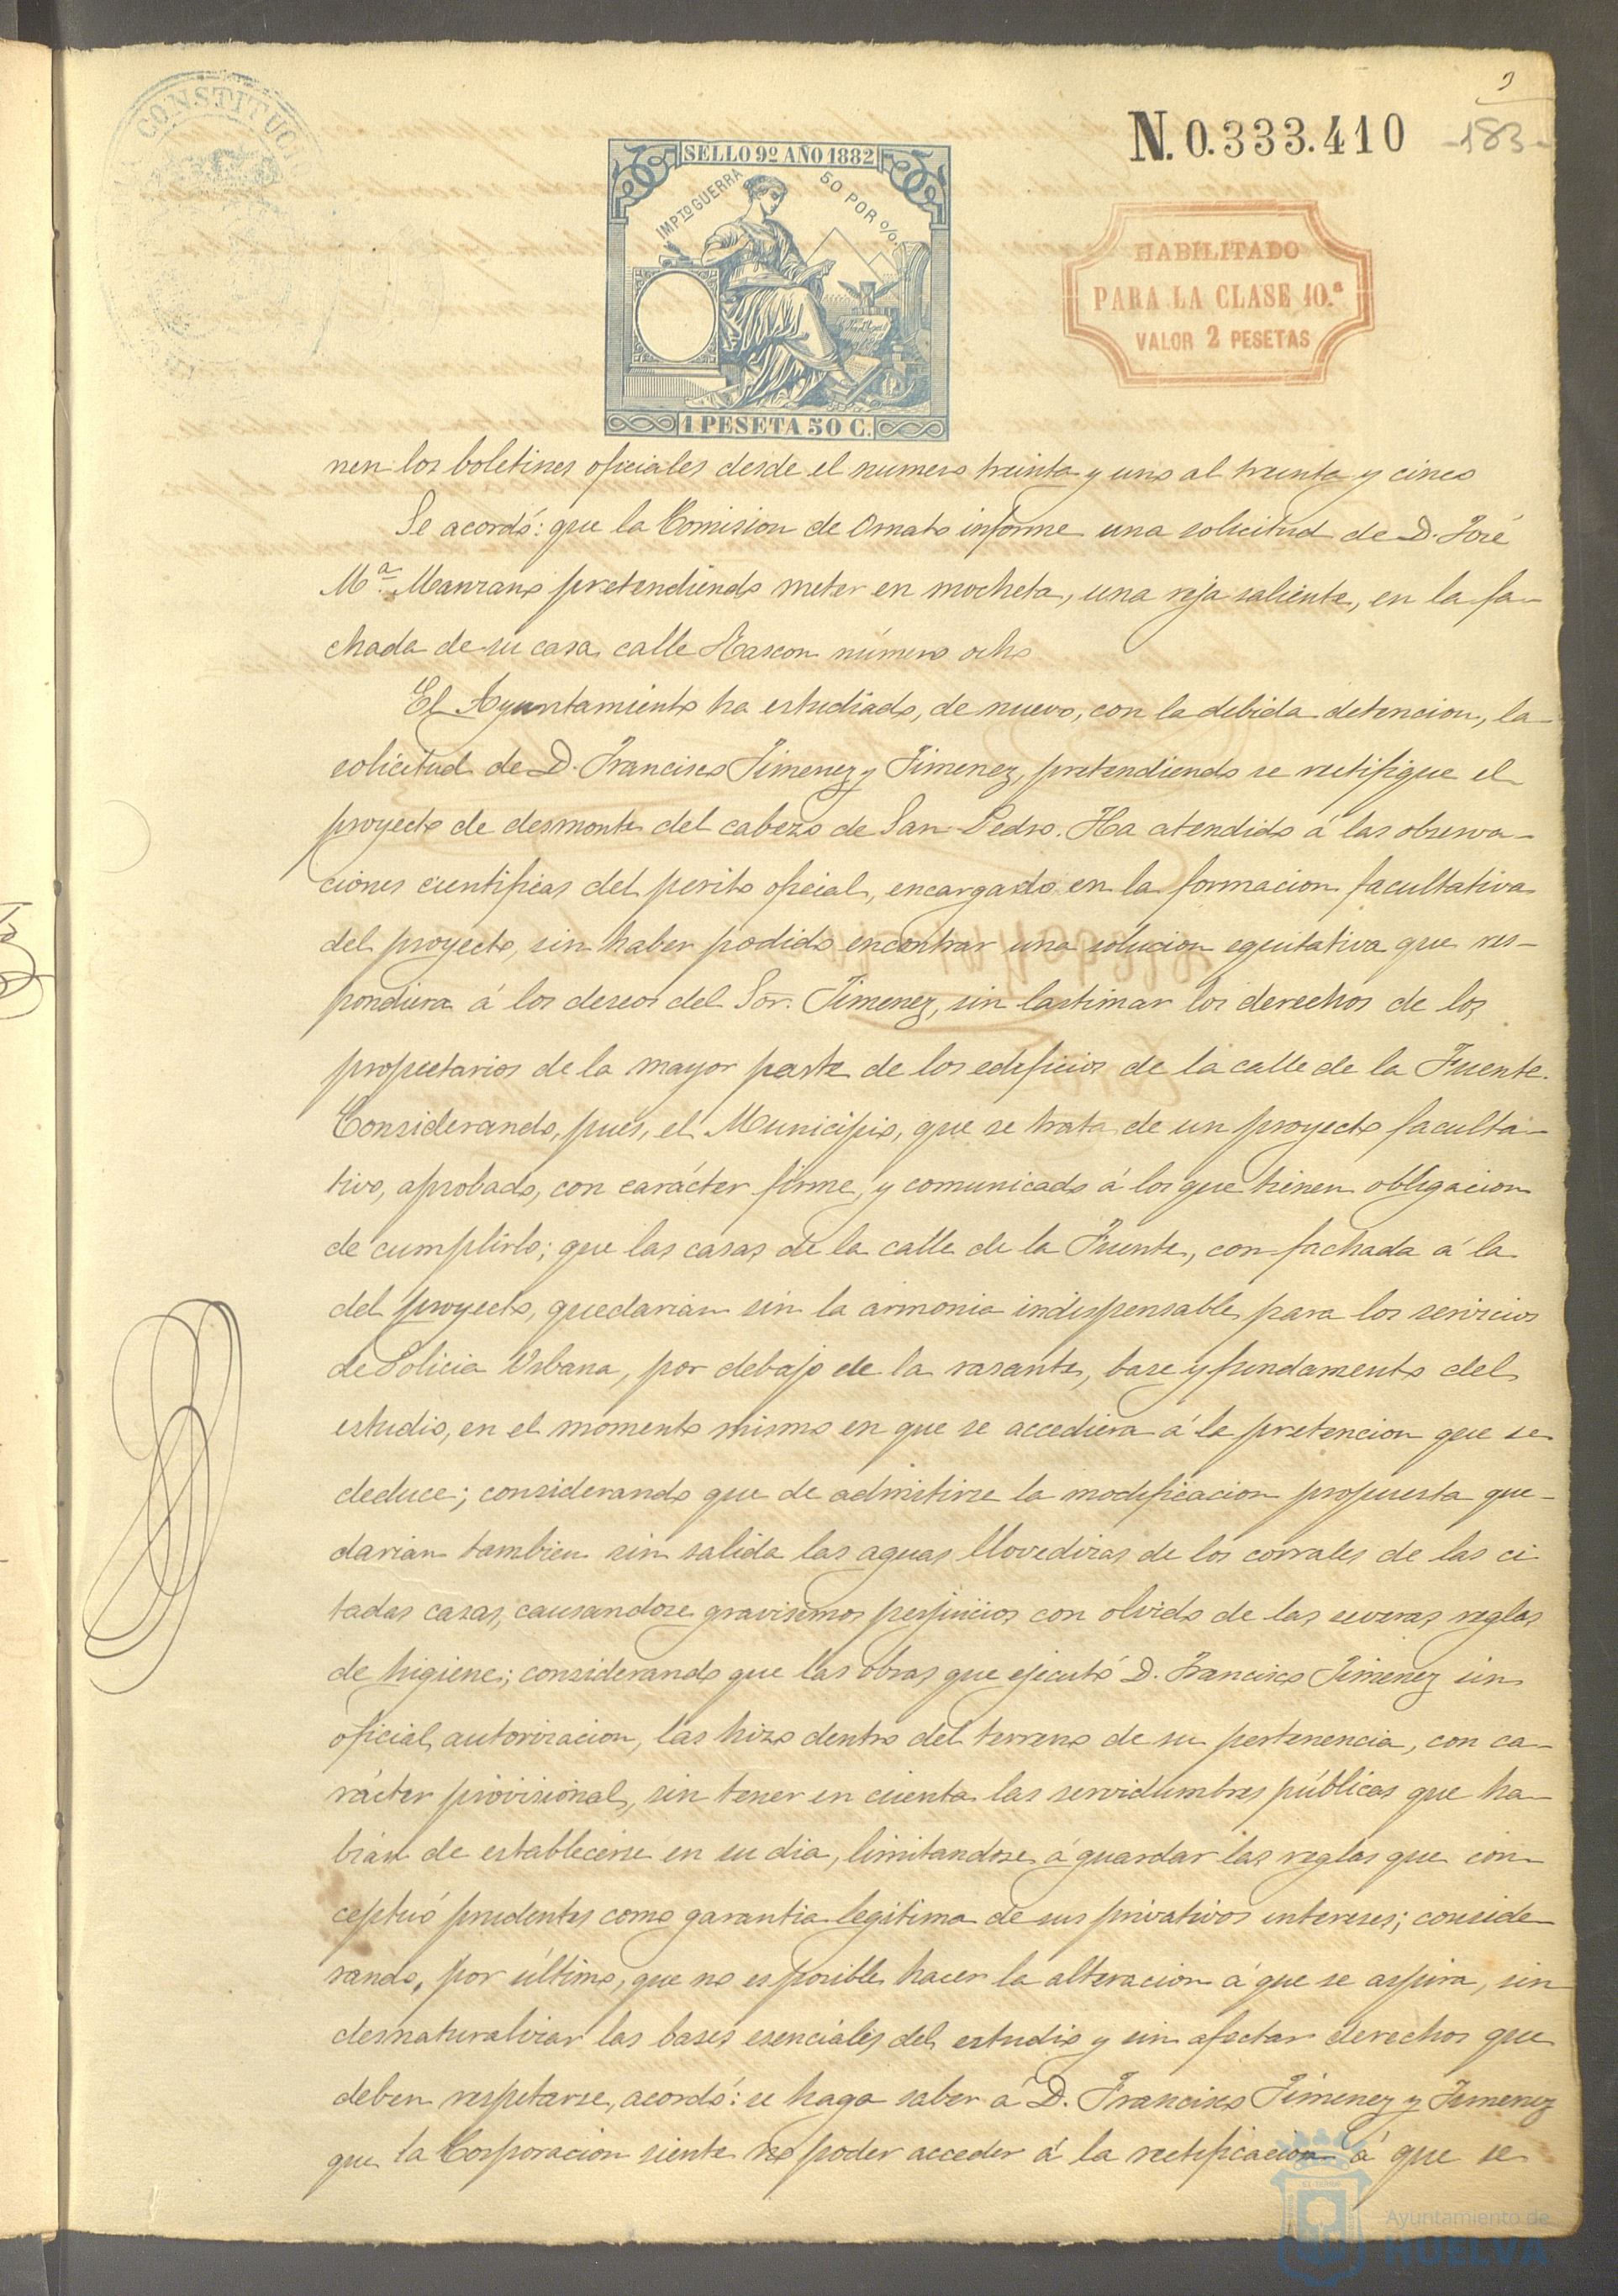 9
N. 0.333.410 -183-
CONSTITUCIO
SELLO 9º AÑO 1882
IMPTO GUERRA 50 POR %.
1 PESETA 50 C.
HABILITADO
PARA LA CLASE 10.ª
VALOR 2 PESETAS
nen los boletines oficiales desde el numero treinta y uno al treinta y cinco
Se acordó: que la Comision de Ornato informe una solicitud de D. José
Mª Manzano pretendiendo meter en mocheta, una reja saliente, en la fa-
chada de su casa calle Rascon número ocho
El Ayuntamiento ha estudiado, de nuevo, con la debida detencion, la
solicitud de D. Francisco Jimenez y Jimenez, pretendiendo se rectifique el
proyecto de desmonte del cabezo de San Pedro. Ha atendido á las observa-
ciones cientificas del perito oficial, encargado en la formacion facultativa
del proyecto, sin haber podido encontrar una solucion equitativa que res-
pondiera á los deseos del Sor. Jimenez, sin lastimar los derechos de los
propietarios de la mayor parte de los edificios de la calle de la Fuente.
Considerando, pues, el Municipio, que se trata de un proyecto faculta-
tivo, aprobado, con carácter firme, y comunicado á los que tienen obligacion
de cumplirlo; que las casas de la calle de la Fuente, con fachada á la
del proyecto, quedarian sin la armonia indispensable para los servicios
de Policia Urbana, por debajo de la rasante, base y fundamento del
estudio, en el momento mismo en que se accediera á la pretencion que se
deduce; considerando que de admitirse la modificacion propuesta que-
darian tambien sin salida las aguas llovedizas de los corrales de las ci
tadas casas, causandose gravisimos perjuicios con olvido de las severas reglas
de higiene; considerando que las obras que ejecutó D. Francisco Jimenez sin
oficial autorizacion, las hizo dentro del terreno de su pertenencia, con ca-
rácter provisional, sin tener en cuenta las servidumbres públicas que ha-
bian de establecerse en su dia, limitandose á guardar las reglas que con-
ceptuó prudentes como garantia legitima de sus privativos intereses; conside-
rando, por último, que no es posible hacer la alteracion á que se aspira, sin
desnaturalizar las bases esenciales del estudio y sin afectar derechos que
deben respetarse, acordó: se haga saber á D. Francisco Jimenez y Jimenez
que la Corporacion siente no poder acceder á la rectificacion á que se
Ayuntamiento de
HUELVA